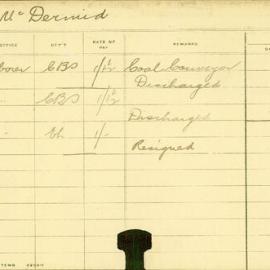 McDermid
OFFICE DEP'T RATE OF PAY REMARKS
CBS 1/½ Coal Conveyor
Discharged
CBS 1/½
Discharged
1/-
Resigned